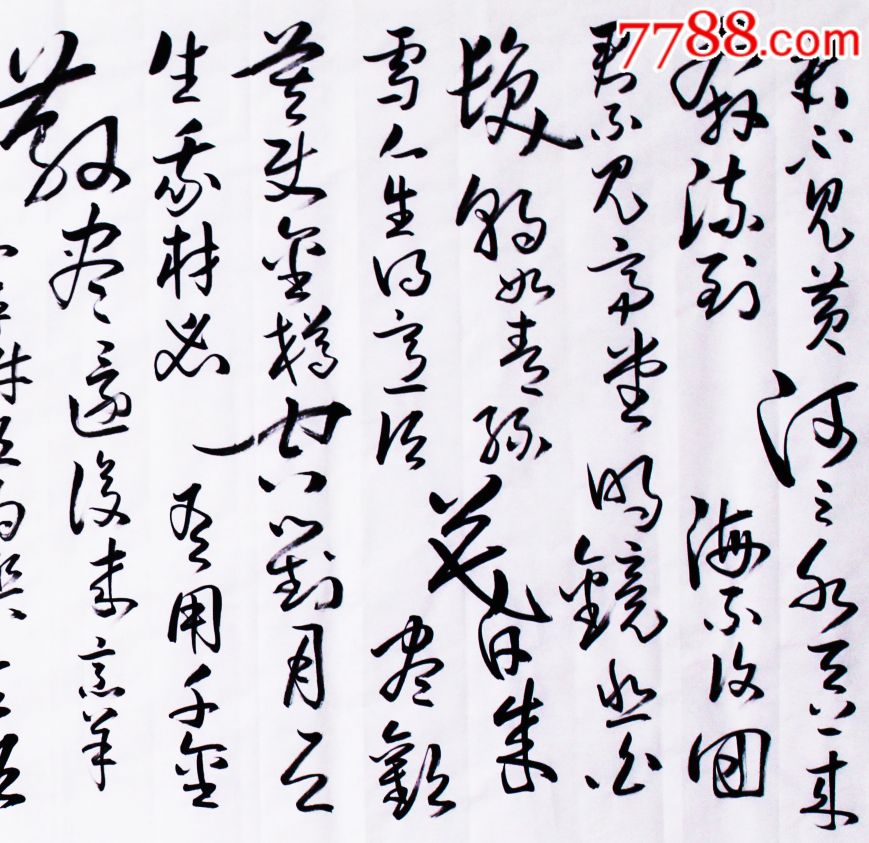 7788.com
君不见黄河之水天上来
奔流到海不復回
君不见高堂明鏡悲白
髮朝如青絲暮成
雪人生得意须尽歡
莫使金樽空對月天
生我材必有用千金
散尽還復来烹羊
宰牛且为樂